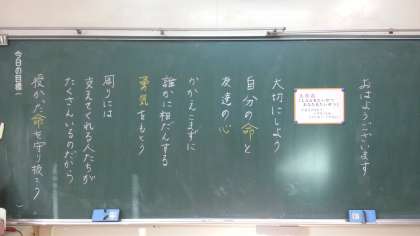 おはようございます
大切にしよう
自分の命と
友達の心
かかえこまずに
誰かに相だんする
勇気をもとう
周りには
支えてくれる人たちが
たくさんいるのだから
今日の目標〜
授かった命を守り抜こう